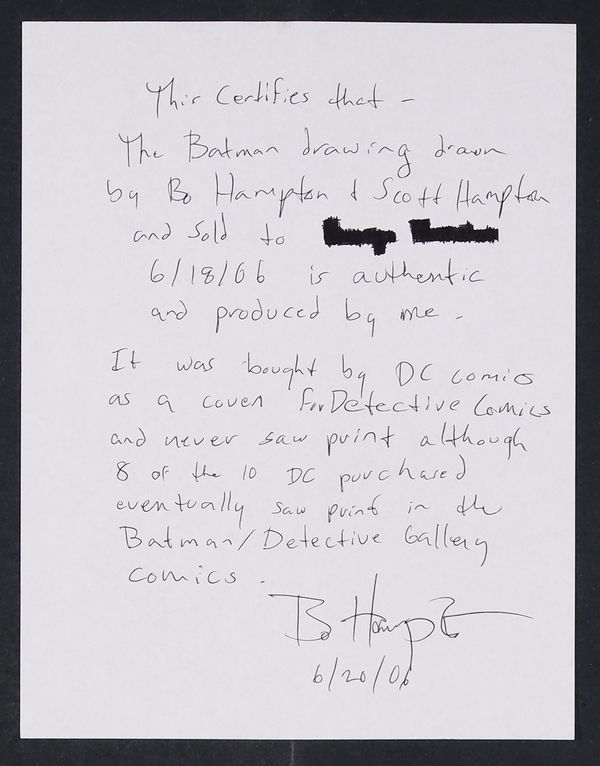 This Certifies that -
The Batman drawing drawn
by Bo Hampton & Scott Hampton
and sold to
6/18/06 is authentic
and produced by me.
It was bought by DC comics
as a cover for Detective Comics
and never saw print although
8 of the 10 DC purchased
eventually saw print in the
Batman/Detective Gallery
comics.
Bo Hampton
6/20/06